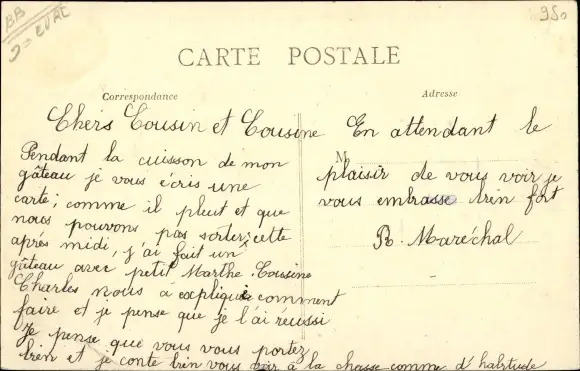 BB
950
CARTE POSTALE
Correspondance
Adresse
Chers Cousin et Cousine
Pendant la cuisson de mon
gâteau je vous écris une
carte; comme il pleut et que
nous pouvons pas sortir; cette
après midi, j'ai fait un
gâteau avec petit Marthe. Cousine
Charles nous à expliquée comment
faire et je pense que je l'ai réussi
Je pense que vous vous portez
bien et je conte bien vous voir à la chasse comme d'habitude
En attendant le
M
plaisir de vous voir je
vous embrasse bien fort
R. Maréchal